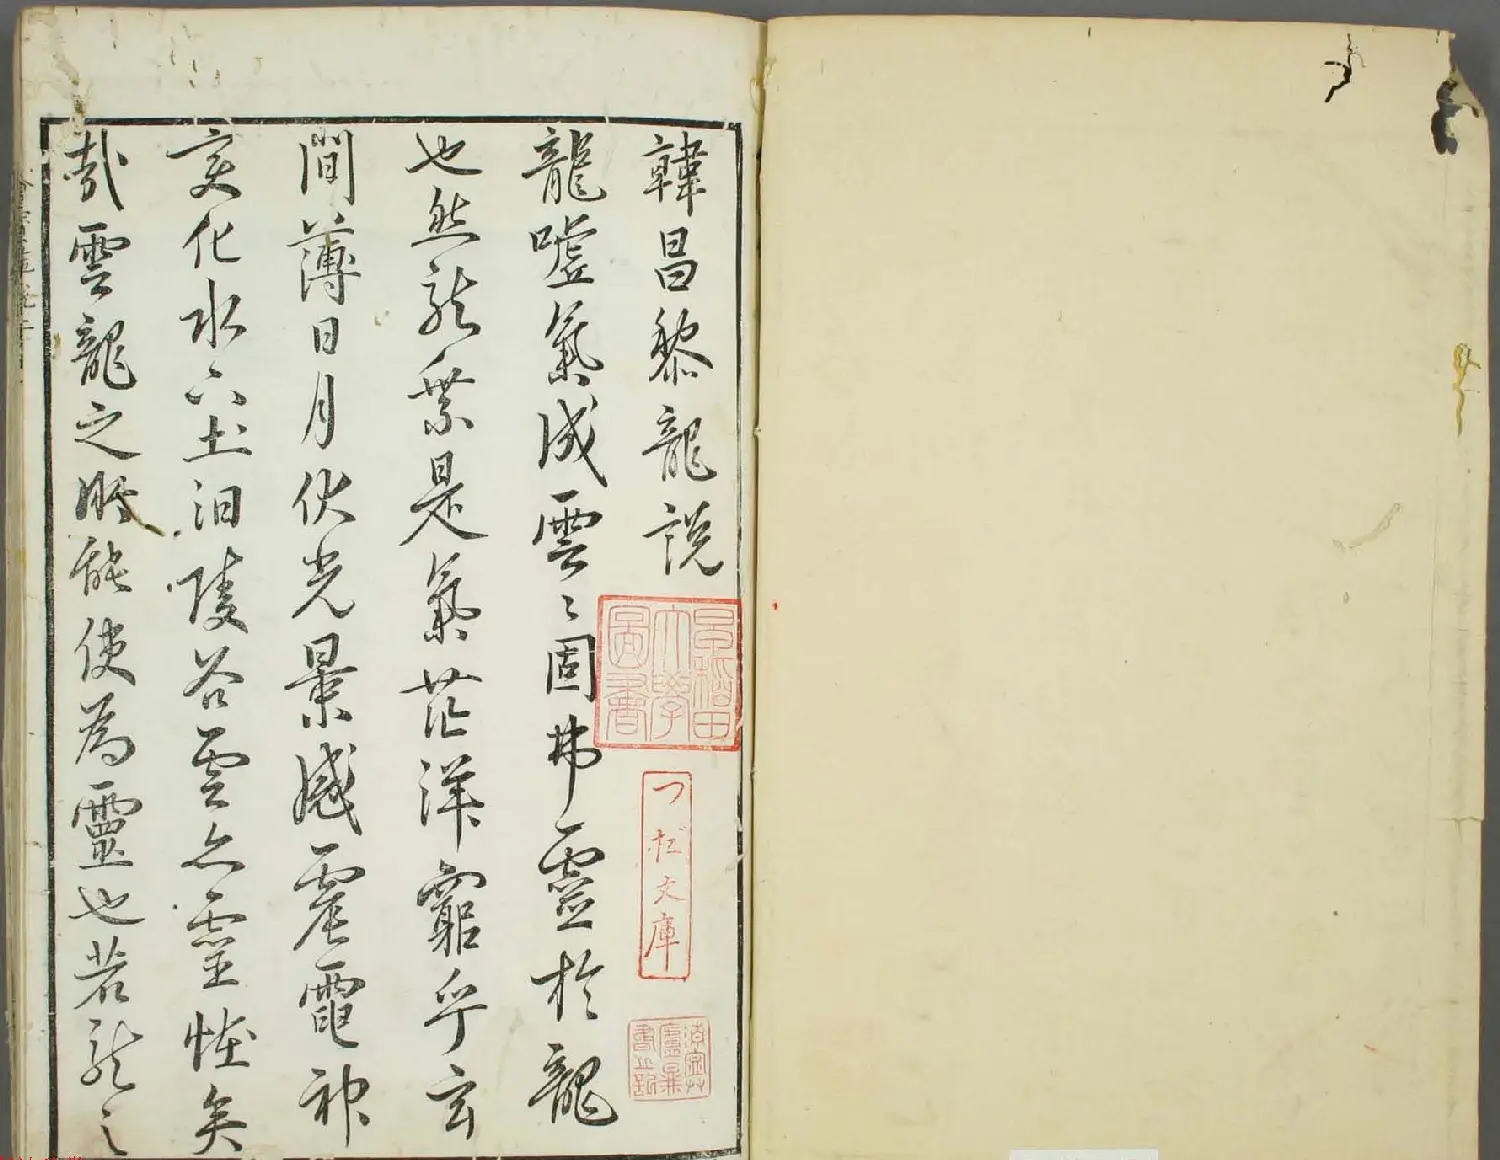 韓昌黎龍説
龍嘘氣成雲〻固弗靈於龍
也然龍乗是氣茫洋窮乎玄
間薄日月伏光景感震電神
変化水下土汩陵谷雲亦霊怪矣
哉雲龍之所能使為靈也若龍之
早稲田大學圖書
つだ文庫